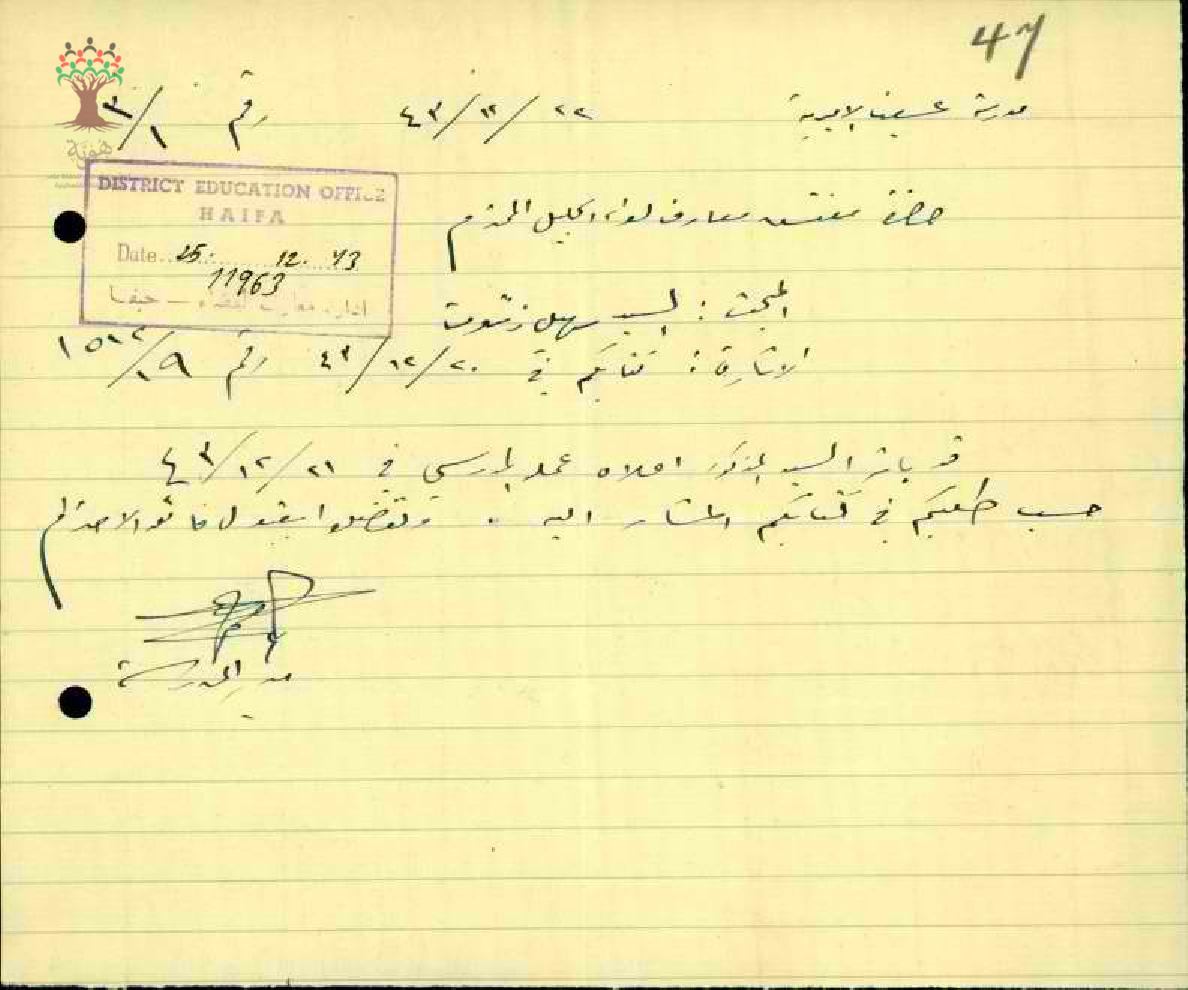 47
مدرسة عسفيا الاميرية ٢٢/١٢/٤٣ رقم ٣/١
هوية
DISTRICT EDUCATION OFFICE
HAIFA
Date 25. 12. 43
11963
ادارة معارف القضاء – حيفا
حضرة مفتش معارف لواء الجليل المحترم
المبحث : السيد سهيل
الاشارة : كتابكم في ٢٠/١٢/٤٣ رقم
قد باشر السيد المذكور اعلاه عمله المدرسي في ٢١/١٢/٤٣
حسب طلبكم في كتابكم المشار اليه . وتفضلوا بقبول فائق الاحترام
مدير المدرسة